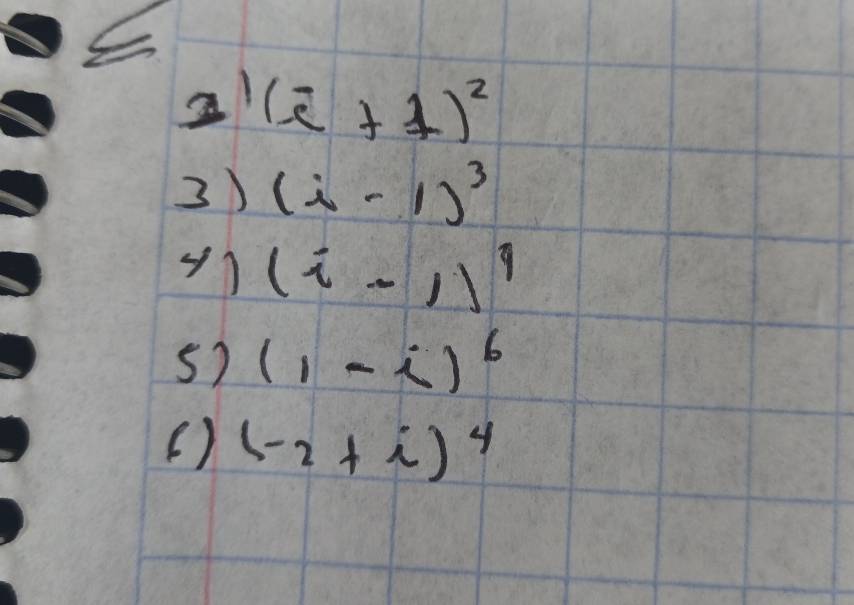 2) (i + 1)²
3) (i - 1)³
4) (i - 1)⁹
5) (1 - i)⁶
6) (-2 + i)⁴